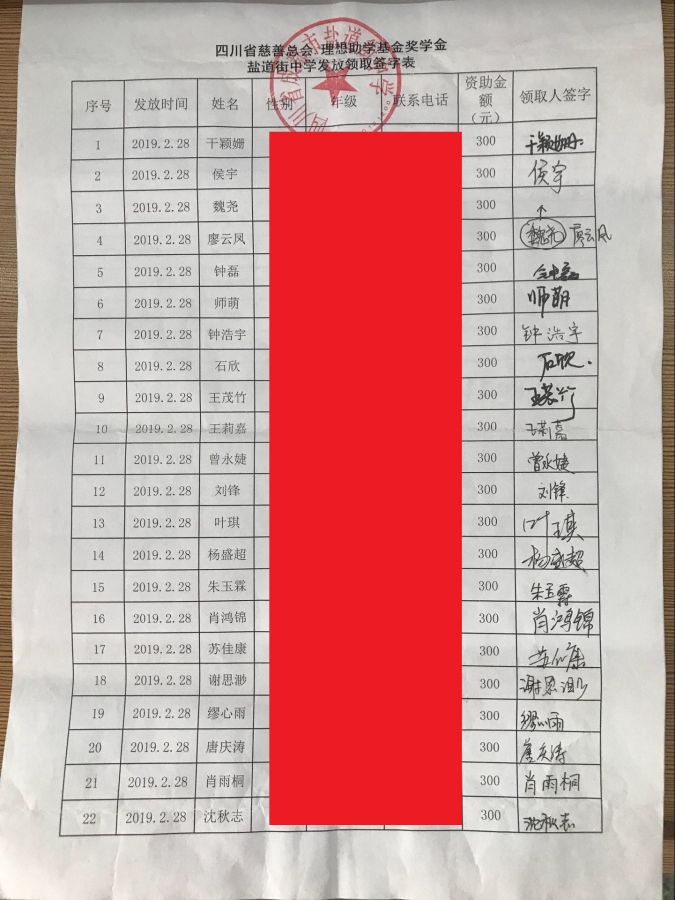 四川省慈善总会、理想助学基金奖学金
盐道街中学发放领取签字表
序号 发放时间 姓名 性别 年级 联系电话 资助金额（元） 领取人签字
1 2019.2.28 干颖姗 300 干颖姗
2 2019.2.28 侯宇 300 侯宇
3 2019.2.28 魏尧 300 ↑
4 2019.2.28 廖云凤 300 魏尧 廖云凤
5 2019.2.28 钟磊 300 钟磊
6 2019.2.28 师萌 300 师萌
7 2019.2.28 钟浩宇 300 钟浩宇
8 2019.2.28 石欣 300 石欣
9 2019.2.28 王茂竹 300 王茂竹
10 2019.2.28 王莉嘉 300 王莉嘉
11 2019.2.28 曾永婕 300 曾永婕
12 2019.2.28 刘锋 300 刘锋
13 2019.2.28 叶琪 300 叶琪
14 2019.2.28 杨盛超 300 杨盛超
15 2019.2.28 朱玉霖 300 朱玉霖
16 2019.2.28 肖鸿锦 300 肖鸿锦
17 2019.2.28 苏佳康 300 苏佳康
18 2019.2.28 谢思渺 300 谢思渺
19 2019.2.28 缪心雨 300 缪心雨
20 2019.2.28 唐庆涛 300 唐庆涛
21 2019.2.28 肖雨桐 300 肖雨桐
22 2019.2.28 沈秋志 300 沈秋志